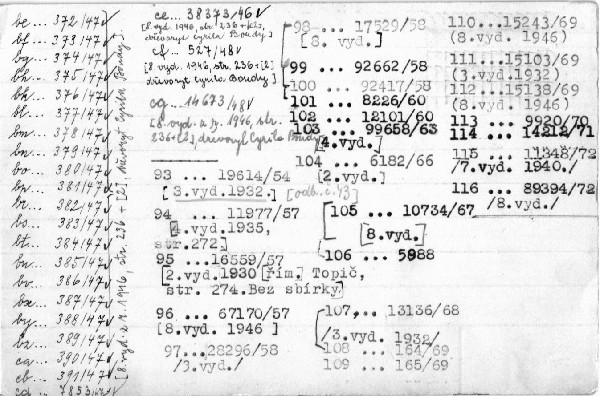 be... 372/47✓
bf... 373/47✓
bg... 374/47✓
bh... 375/47✓
bk... 376/47✓
bl... 377/47✓
bm... 378/47✓
bn... 379/47✓
bo... 380/47✓
bp... 381/47✓
br... 382/47✓
bs... 383/47✓
bt... 384/47✓
bu... 385/47✓
bv... 386/47✓
bx... 387/47✓
by... 388/47✓
bz... 389/47✓
ca... 390/47✓
cb... 391/47✓
cd... 7853/47✓
[8. vyd. a r. 1946, str. 236 + [2], dřevoryt Cyrila Boudy]
ce... 38373/46✓
[8. vyd. 1946, str. 236 + [2], dřevoryt Cyrila Boudy]
cf... 527/48✓
[8. vyd. 1946, str. 236+[2]
dřevoryt Cyrila Boudy]
cg... 14673/48✓
[8. vyd. a r. 1946, str.
236+[2] dřevoryt Cyrila Boudy]
93 ... 19614/54
[3.vyd.1932.] [odb. č. 43]
94 ... 11977/57
[4.vyd.1935,
str.272]
95 ...16559/57
[2.vyd.1930 [Řím. Topič,
str. 274.Bez sbírky]
96 ... 67170/57
[8.vyd. 1946 ]
97...28296/58
/3.vyd./
98 ... 17529/58
[8. vyd.]
99 ... 92662/58
100 ... 92417/58
101 ... 8226/60
102 ... 12101/60
103 ... 99658/63
[4.vyd.]
104 ... 6182/66
[2.vyd.]
105 ... 10734/67
[8.vyd.]
106 ... 5988
107,.. 13136/68
/3.vyd. 1932/
108 ... 164/69
109 ... 165/69
110 ...15243/69
(8.vyd. 1946)
111...15103/69
(3.vyd.1932)
112 ...15138/69
(8.vyd. 1946)
113 ... 9920/70
114 ... 14212/71
115 ... 11348/72
/7.vyd. 1940./
116 ... 89394/72
/8.vyd./